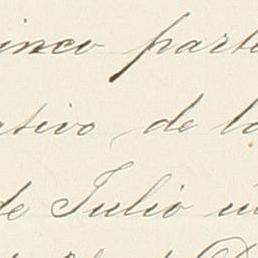 inco parte
ativo de lo
de Julio u